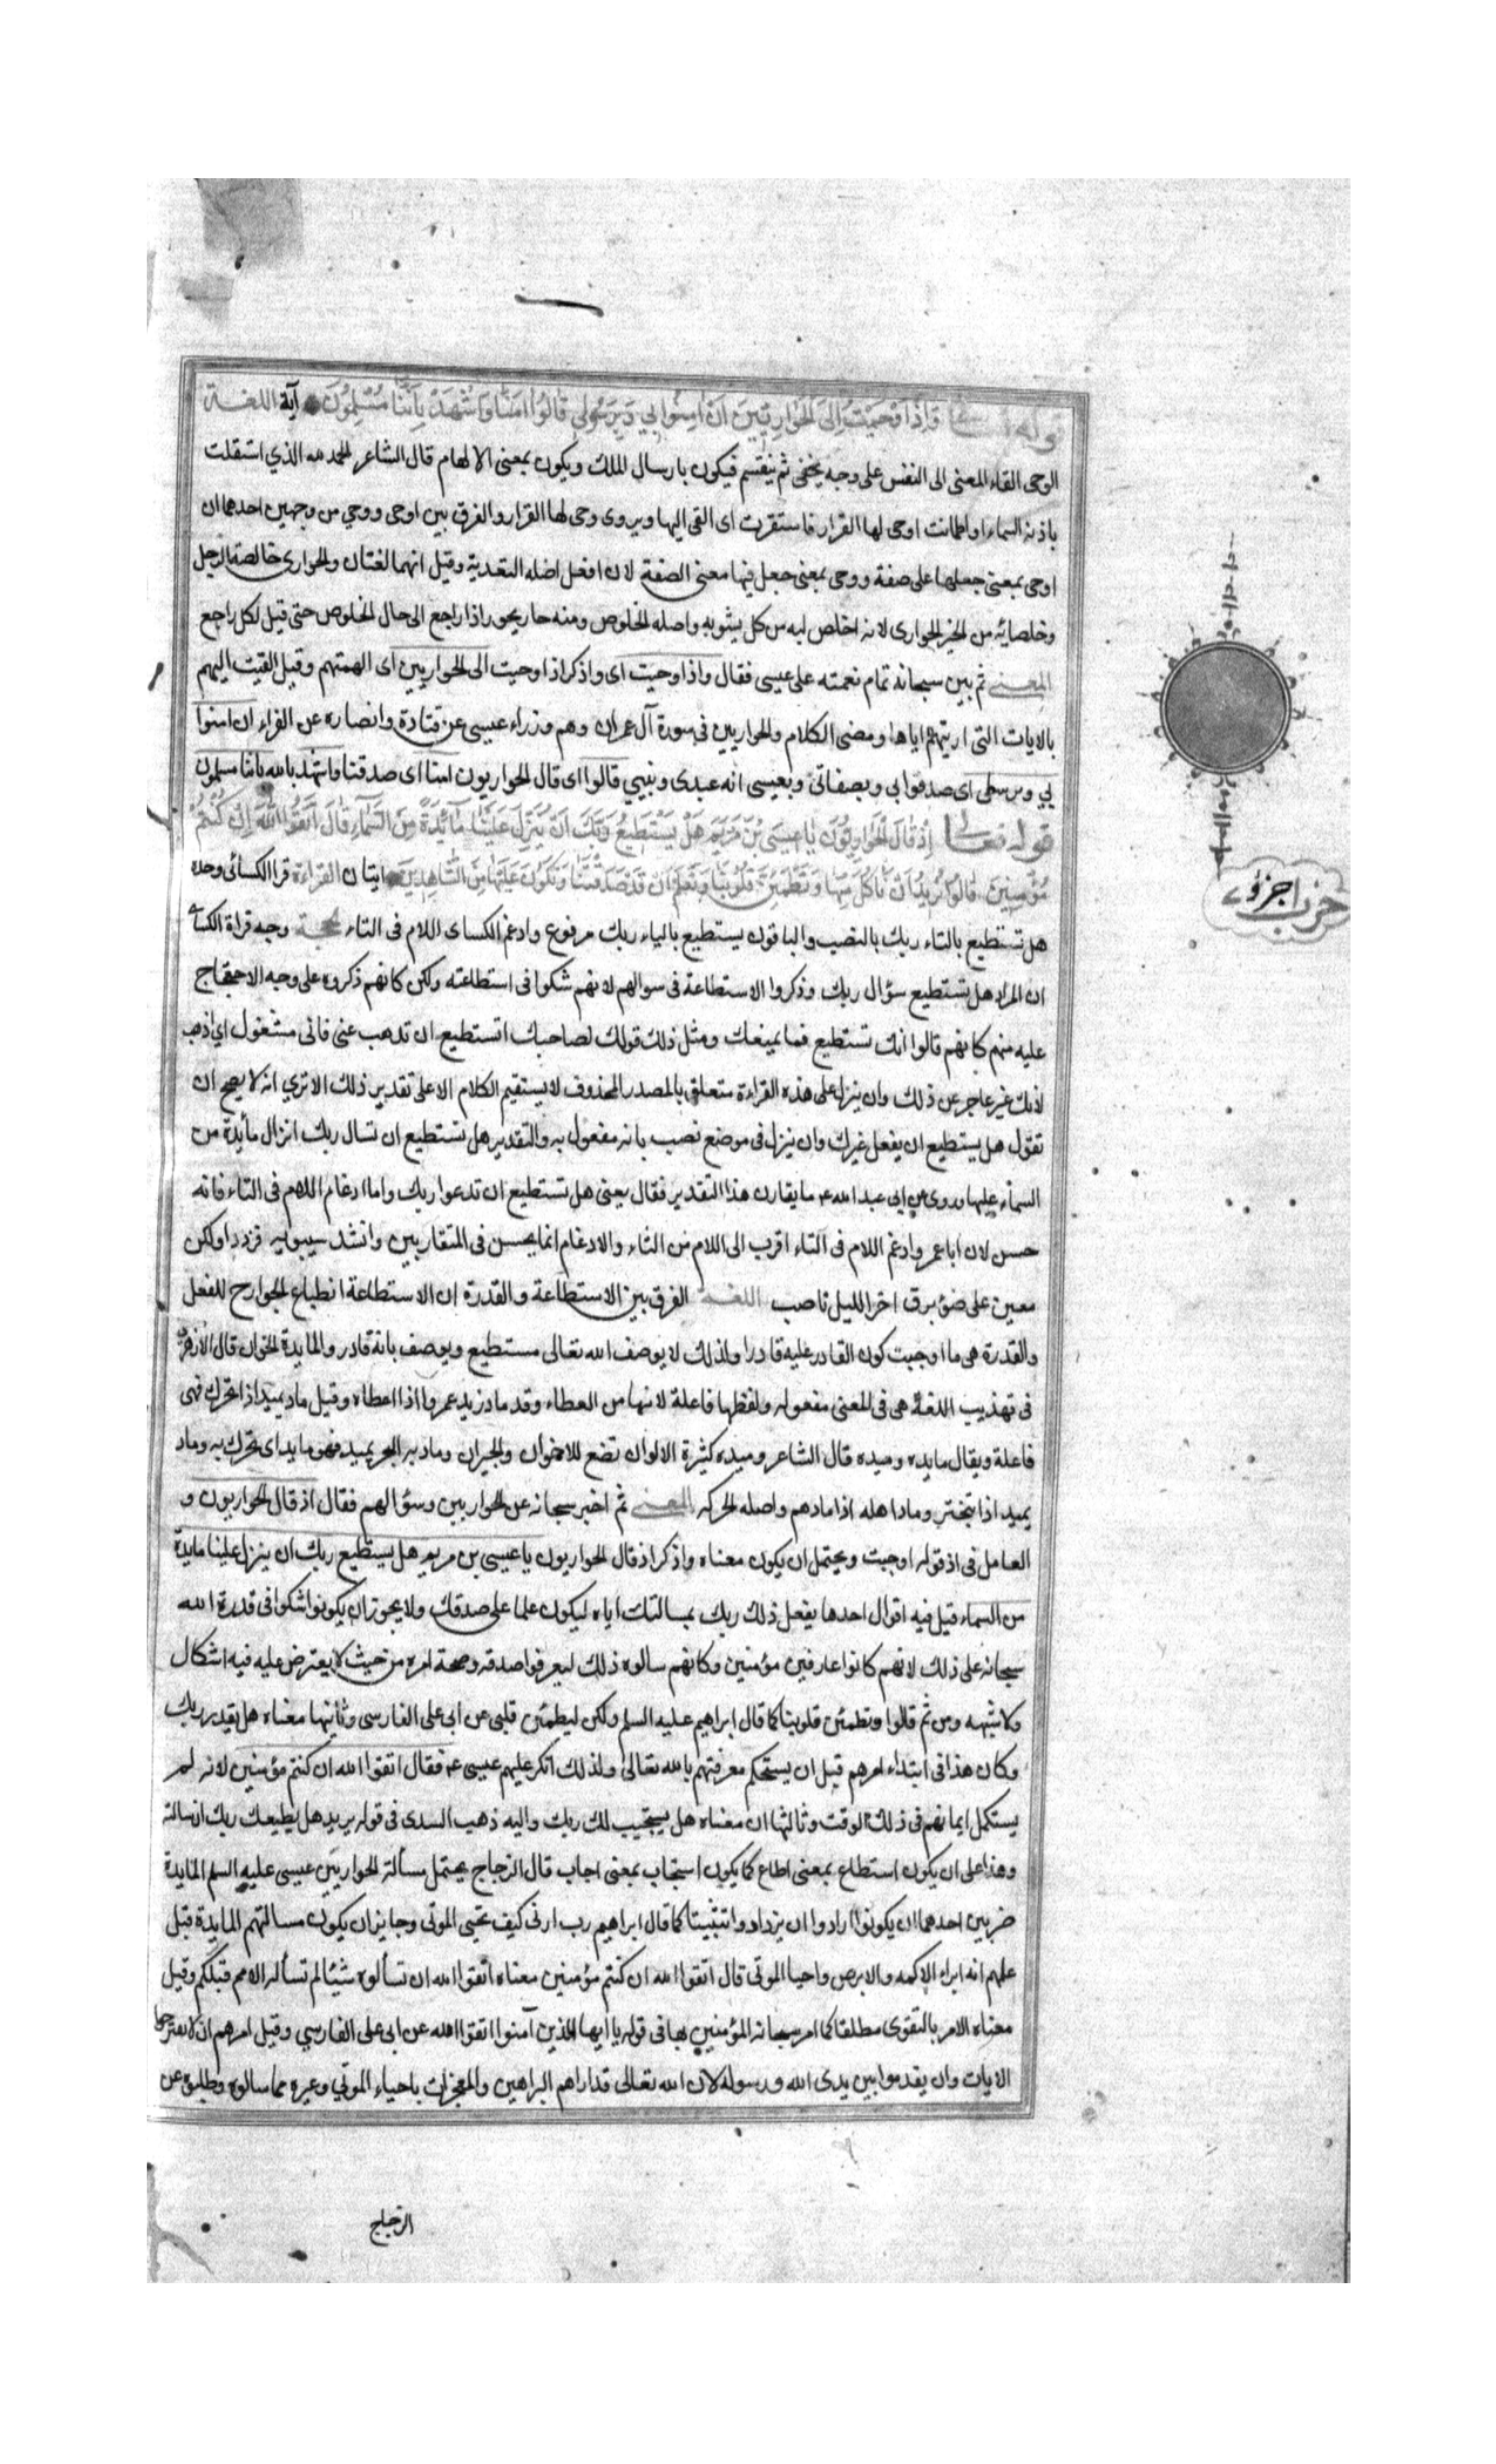 قوله تعالى وَاِذْ اَوْحَيْتُ اِلَى الْحَوَارِيّينَ اَنْ اٰمِنُوا بِي وَبِرَسُولِي قَالُوا اٰمَنَّا وَاشْهَدْ بِاَنَّنَا مُسْلِمُونَ آية اللغــة
الوحى القاء المعنى الى النفس على وجه يخفى ثم ينقسم فيكون بارسال الملك ويكون بمعنى الالهام قال الشاعر الحمد لله الذي استقلت
باذنه السماء واطمانت اوحى لها القرار فاستقرت اى القى اليها ويروى وحى لها القرار والفرق بين اوحى ووحي من وجهين احدهما ان
اوحى بمعنى جعلها على صفة ووحى بمعنى جعل فيها معنى الصفة لان افعل اصله التعدية وقيل انهما لغتان والحوارى خالصة الرجل
وخلصائه من الخبز الحوارى لانه اخلص لبه من كل يشوبه واصله الخلوص ومنه حار يحور اذا راجع الى حال الخلوص حتى قيل لكل راجع
المعنــى ثم بين سبحانه تمام نعمته على عيسى فقال واذ اوحيت اى واذكر اذ اوحيت الى الحواريين اى الهمتهم وقيل القيت اليهم
بالايات التى اريتهم اياها ومضى الكلام والحواريين فى سورة آل عمران وهم وزراء عيسى عن قتادة وانصاره عن الفراء ان امنوا
بي وبرسولى اى صدقوا بي وبصفاتى وبعيسى انه عبدى ونبيي قالوا اى قال الحواريون امنا اى صدقنا واشهد بالله باننا مسلمون
قوله تعـالى اِذْ قَالَ الْحَوَارِيُّونَ يَا عِيسَى بْنَ مَرْيَمَ هَلْ يَسْتَطِيعُ رَبُّكَ اَنْ يُنَزِّلَ عَلَيْنَا مَآئِدَةً مِنَ السَّمَآءِ قَالَ اتَّقُوا اللّٰهَ اِنْ كُنْتُمْ
مُؤْمِنِينَ قَالُوا نُرِيدُ اَنْ نَاْكُلَ مِنْهَا وَتَطْمَئِنَّ قُلُوبُنَا وَنَعْلَمَ اَنْ قَدْ صَدَقْتَنَا وَنَكُونَ عَلَيْهَا مِنَ الشَّاهِدِينَ ايتان القراءة قرا الكسائى وحده
هل تستطيع بالتاء ربك بالنصب والباقون يستطيع بالياء ربك مرفوع وادغم الكساى اللام فى التاء الحجــة وجه قراة الكسائى
ان المراد هل تستطيع سؤال ربك وذكروا الاستطاعة فى سوالهم لا نهم شكوا فى استطاعته ولكن كانهم ذكروه على وجه الاحتجاج
عليه منهم كانهم قالوا انك تستطيع فما يمنعك ومثل ذلك قولك لصاحبك اتستطيع ان تدهب عنى فانى مشغول اي اذهب
لانك غير عاجر عن ذلك وان ينزل على هذه القراءة متعلق بالمصدر المحذوف لا يستقيم الكلام الا على تقدير ذلك الا تري انه لا يصح ان
تقول هل يستطيع ان يفعل غيرك وان ينزل فى موضع نصب بانه مفعول به والتقدير هل تستطيع ان تسال ربك انزال مائدة من
السماء عليها وروى عن ابى عبد الله ع ما يقارب هذا التقدير فقال يعنى هل تستطيع ان تدعوا ربك واما ادغام اللام فى التاء فانه
حسن لان ابا عمرو ادغم اللام فى الثاء والتاء اقرب الى اللام من الثاء والادغام انما يحسن فى المتقاربين وانشد سيبويه فذر ذا ولكن
معين على ضوء برق اخر الليل ناصب اللغــة الفرق بين الاستطاعة والقدرة ان الاستطاعة انطباع الجوارح للفعل
والقدرة هى ما اوجبت كون القادر عليه قادرا ولذلك لا يوصف الله تعالى مستطيع ويوصف بانه قادر والمايدة الخوان قال الازهرى
فى تهذيب اللغة هى فى المعنى مفعوله ولفظها فاعلة لانها من العطاء وقد ماد زيد عمروا اذا اعطاه وقيل ماد يميد اذا تحرك فهى
فاعلة ويقال مايده وميده قال الشاعر وميده كثيرة الالوان تضع للاخوان والجيران وماد به البحر يميد فهو مايد اى تحرك به وماد
يميد اذا تبختر وماد اهله اذا مادهم واصله الحركه المعنــى ثم اخبر سبحانه عن الحواريين وسؤالهم فقال اذ قال الحواريون و
العامل فى اذ قوله اوحيت ويحتمل ان يكون معناه واذكر اذ قال الحواريون يا عيسى بن مريم هل يستطيع ربك ان ينزل علينا مايدة
من السماء قيل فيه اقوال احدها يفعل ذلك ربك بمسالتك اياه ليكون علما على صدقك ولا يجوز ان يكونوا شكوا فى قدرة الله
سبحانه على ذلك لانهم كانوا عارفين مؤمنين وكانهم سالوه ذلك ليعرفوا صدقه وصحة امره من حيث لا يعترض عليه فيه اشكال
ولا شبهه ومن ثم قالوا وتطمئن قلوبنا كما قال ابراهيم عليه السلم ولكن ليطمئن قلبى عن ابى على الفارسى وثانيها معناه هل يقدر ربك
وكان هذا فى ابتداء امرهم قبل ان يستحكم معرفتهم بالله تعالى ولذلك انكر عليهم عيسى ع فقال اتقوا الله ان كنتم مؤمنين لانه لم
يستكمل ايمانهم فى ذلك الوقت وثالثها ان معناه هل يستجيب لك ربك واليه ذهب السدى فى قوله يريد هل يطيعك ربك ان سالته
وهذا على ان يكون استطاع بمعنى اطاع كما يكون استجاب بمعنى اجاب قال الزجاج يحتمل مسألة الحواريين عيسى عليه السلم المايدة
ضربين احدهما ان يكونوا ارادوا ان يزدادوا تثبيتا كما قال ابراهيم رب ارنى كيف تحيى الموتى وجايز ان يكون مسالتهم المايدة قبل
علمهم انه ابراء الاكمه والابرص واحيا الموتى قال اتقوا الله ان كنتم مؤمنين معناه اتقوا الله ان تسألوه شيئا لم تسأله الامم قبلكم وقيل
معناه الامر بالتقوى مطلقا كما امر سبحانه المؤمنين بها فى قوله يا ايها الذين آمنوا اتقوا الله عن ابى على الفارسي وقيل امرهم ان لا يقترحوا
الايات وان يقدموا بين يدى الله ورسوله لان الله تعالى قد اراهم البراهين والمعجزات باحياء الموتي وغيره مما سالوه وطلبوه عن
حزب اجزؤ
الزجاج